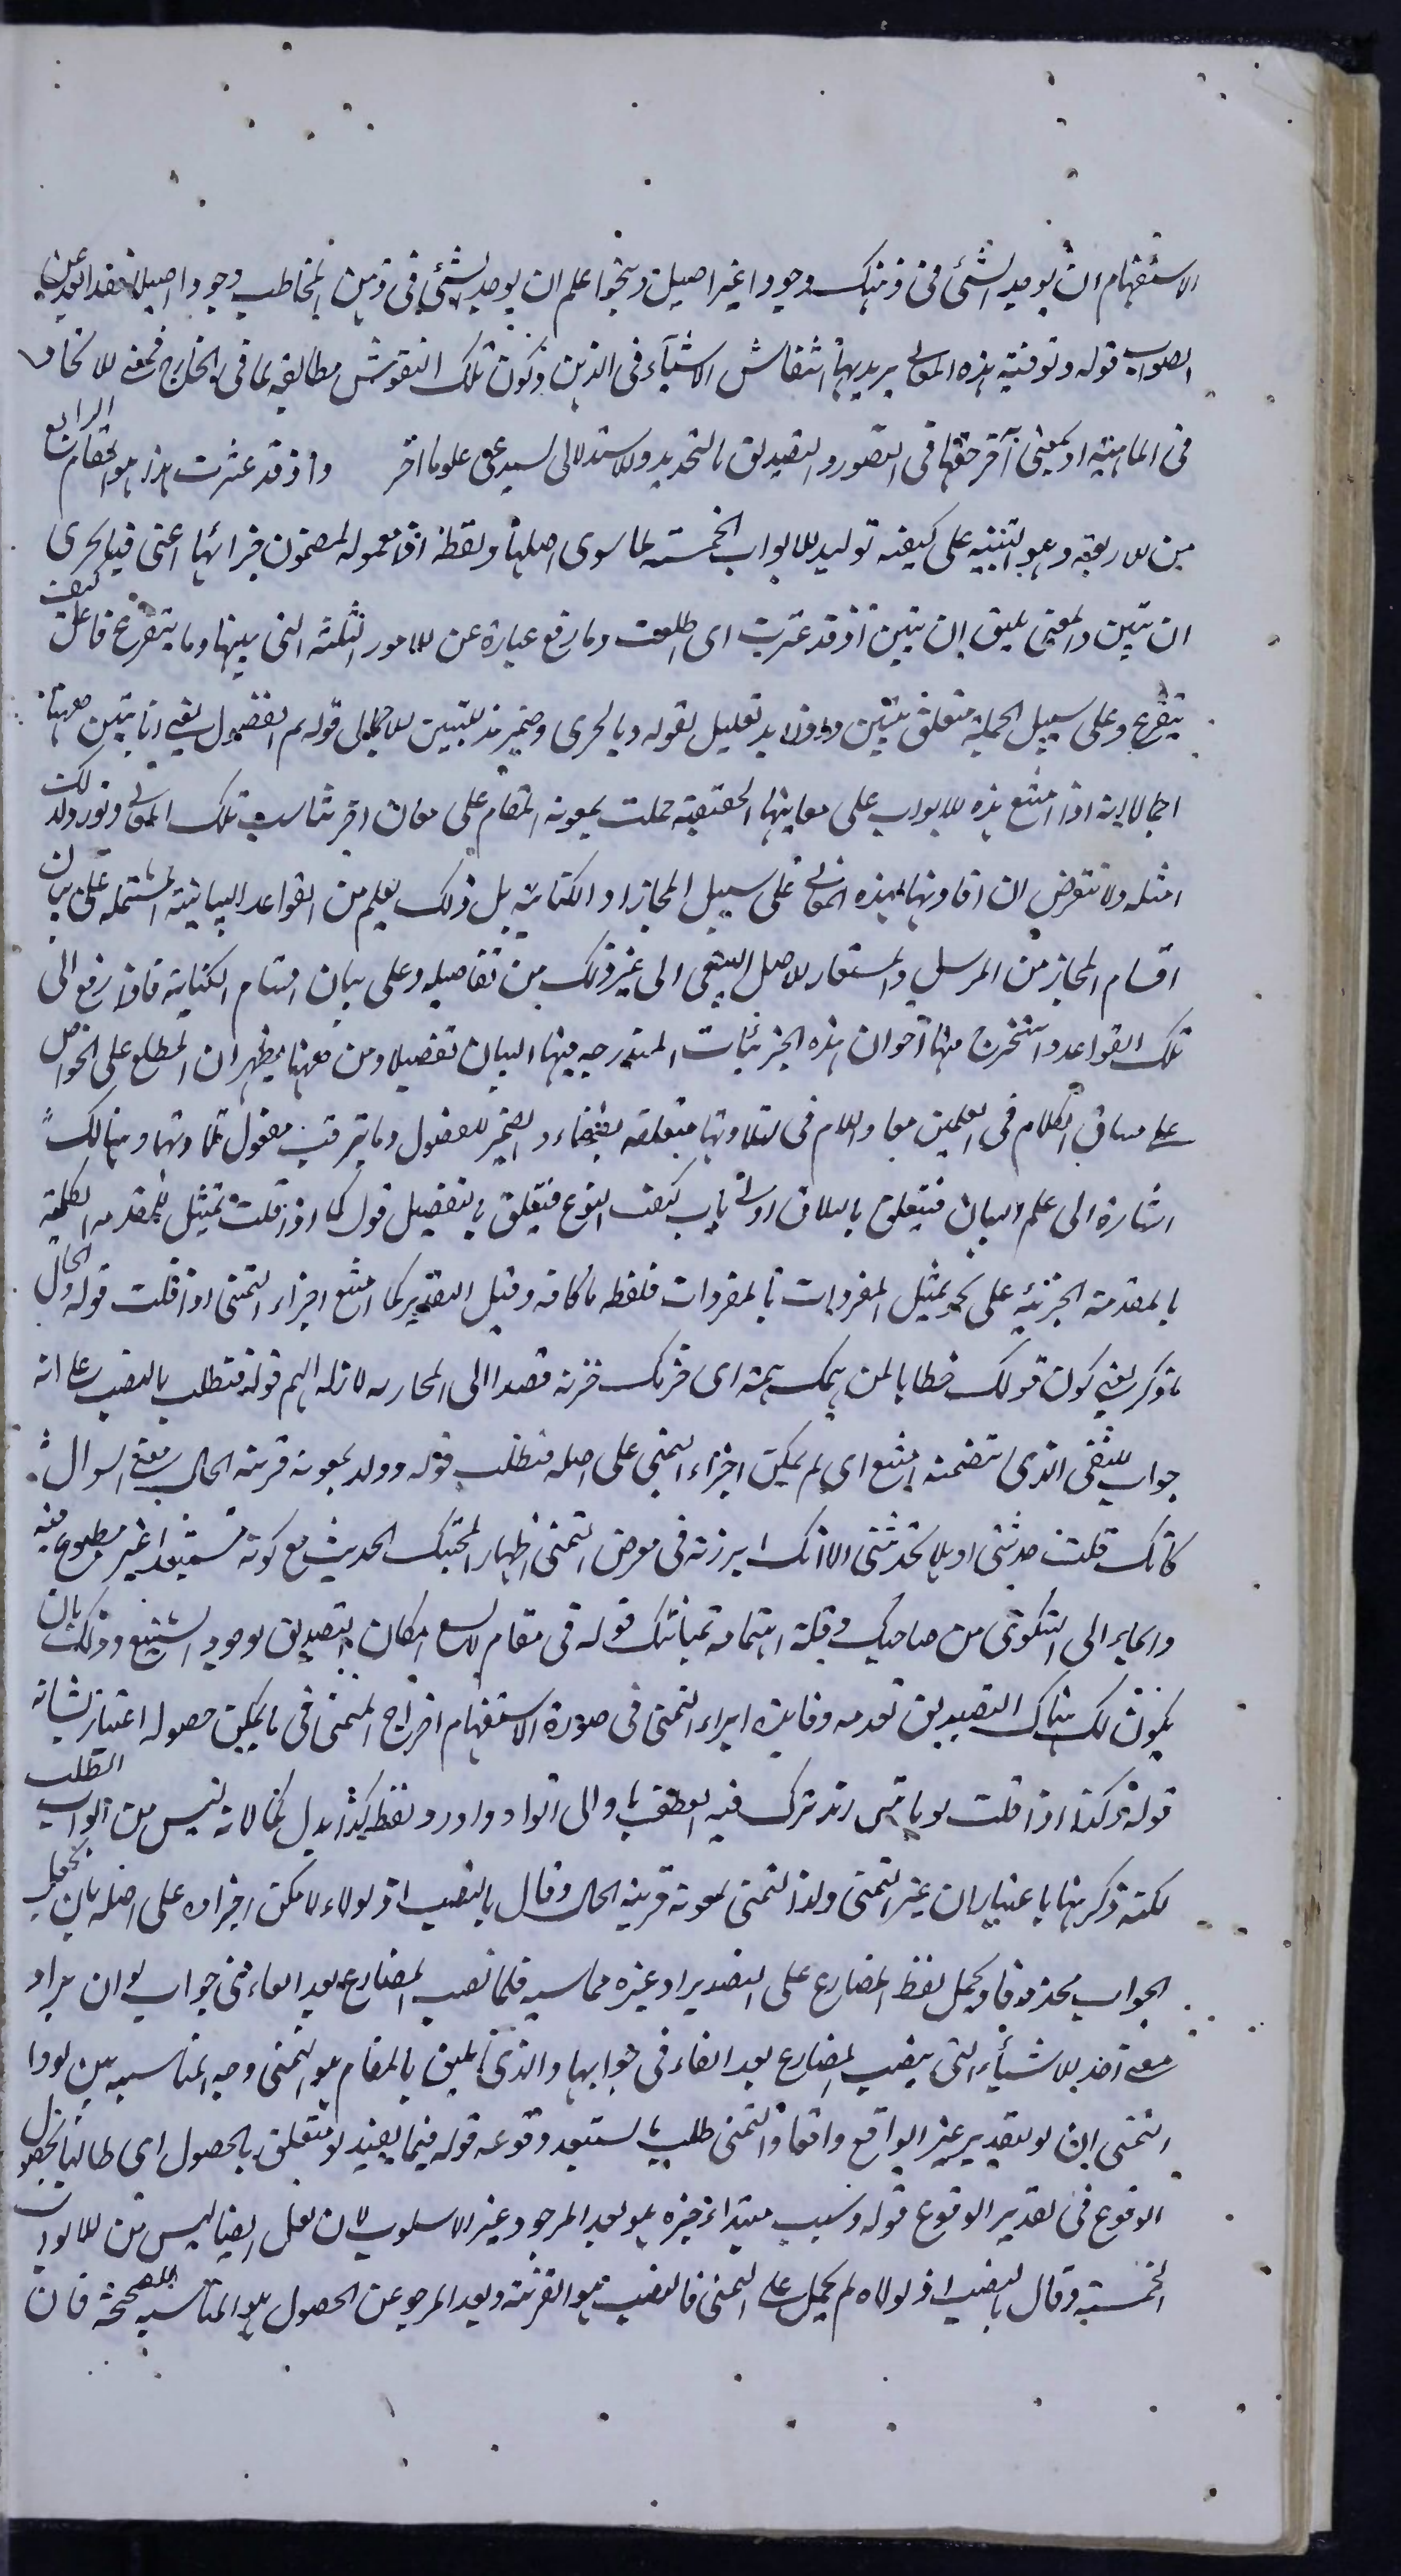 الاستفهام ان يوجد الشئ فى ذهنك وجودا غير اصيل و بنحو اعلم ان يوجد الشئ فى ذهن المخاطب وجودا اصيلا فقد ابعد عن
الصواب قوله وتوفية هذه المعانى يريد بها انتقاش الاشياء فى الذهن وكون تلك النقوش مطابقة لما فى الخارج للاتحاد
فى الماهية او بمعنى آخر حققها فى التصور والتصديق بالتحديد والاستدلال علوما اخر واذ قد عثرت هذا هو المقام الرابع
من الاربعة وهو التنبيه على كيفية توليد الابواب الخمسة لما سوى اصلها ولفظة اذ معمولة لمضمون جزائها اعنى فبالحرى
ان نتبين والمعنى يليق ان نتبين اذ قد عثرت اى اطلعت وما رفع عبارة عن الامور الثلثة التى بينها وما يتفرع فاعل كيف
يتفرع وعلى سبيل الجملة متعلق بنتبين تعليل لقوله وبالحرى وضمير للتبيين الاجمالى قوله ثم الفصول يعنى انا نتبين ههنا
اجمالا انه اذا امتنع هذه الابواب على معانيها الحقيقية حملت بمعونة المقام على معان اخر تناسب تلك المعانى ونورد لذلك
امثلة ولا نتعرض ان افادتها لهذه المعانى على سبيل المجاز او الكناية بل ذلك يعلم من القواعد البيانية المشتملة على بيان
اقسام المجاز من المرسل والمستعار الاصلى التبعى الى غير ذلك من تفاصيله وعلى بيان اقسام الكناية فاذا رفع الى
تلك القواعد واستخرج منها احوال هذه الجزئيات المندرجة فيها البيان تفصيلا ومن ههنا يظهر ان المطلع على الخواص
على مساق الكلام فى العلمين معا واللام فى لتلاوتها متعلقة والضمير للفصول وما يترقب مفعول تلاوتها وهنالك
اشارة الى علم البيان فيتعلق بالتلاوة او باب كيفية التنوع فيتعلق بالتفصيل قوله كما اذا قلت تمثيل للمقدمة الكلية
بالمقدمة الجزئية على نحو تمثيل المفردات بالمفردات فلفظة ما كافة وقيل التقدير كما امتنع اجراء التمنى اذا قلت قوله الحال
ما ذكر يعنى كون قولك خطابا لمن همك همه اى حزنك حزنه قصدا الى المحاربة لازالة الهم قوله فتطلب بالنصب على انه
جواب للنفى الذى تضمنه امتنع اى لم يمكن اجراء التمنى على اصله فتطلب قوله وولد بمعونة قرينة الحال معنى السوال
كانك قلت حدثنى او هلا تحدثنى الا انك ابرزته فى معرض التمنى اظهارا لمحبتك الحديث مع كونه مستبعدا غير مطموع فيه
وايماء الى الشكوى من صاحبك وقلة اهتمامه تمنياتك قوله فى مقام لا يسع امكان التصديق بوجود الشفيع وذلك بان
يكون لك هناك التصديق بعدمه وفايدة ابراء التمنى فى صورة الاستفهام اخراج المتمنى فى ما يمكن حصوله اعتبارا بشانه
قوله وكذا اذا قلت لو ياتينى زيد ترك فيه العطف باو الى الواو واورد لفظ كذا بدل كما لانه ليس من ابواب الطلب
لكنه ذكر هنا باعتبار ان غير التمنى ولد التمنى بمعونة قرينة الحال وقال بالنصب اذ لولاه لامكن اجراؤه على اصله بان يجعل
الجواب محذوفا ويحمل لفظ المضارع على التقدير او غيره مما يناسبه فلما نصب المضارع بعد الفاء فى جواب لو ان يراد
معنى احد الاشياء التى ينصب المضارع بعد الفاء فى جوابها والذى يليق بالمقام هو التمنى وجه المناسبة بين لو واداة
التمنى ان لو لتقدير غير الواقع واقعا والتمنى طلب ما يستبعد وقوعه قوله فيما يفيد لو متعلق بالحصول اى طالبا لحصول
الوقوع فى تقدير الوقوع قوله وسبب مبتدا خبره هو بعد المرجو وغير الاسلوب لان لعل ايضا ليس من الابواب
الخمسة وقال بالنصب اذ لولاه لم يحمل على التمنى فالنصب هو القرينة وبعد المرجو عن الحصول هو المناسبة المصححة فان